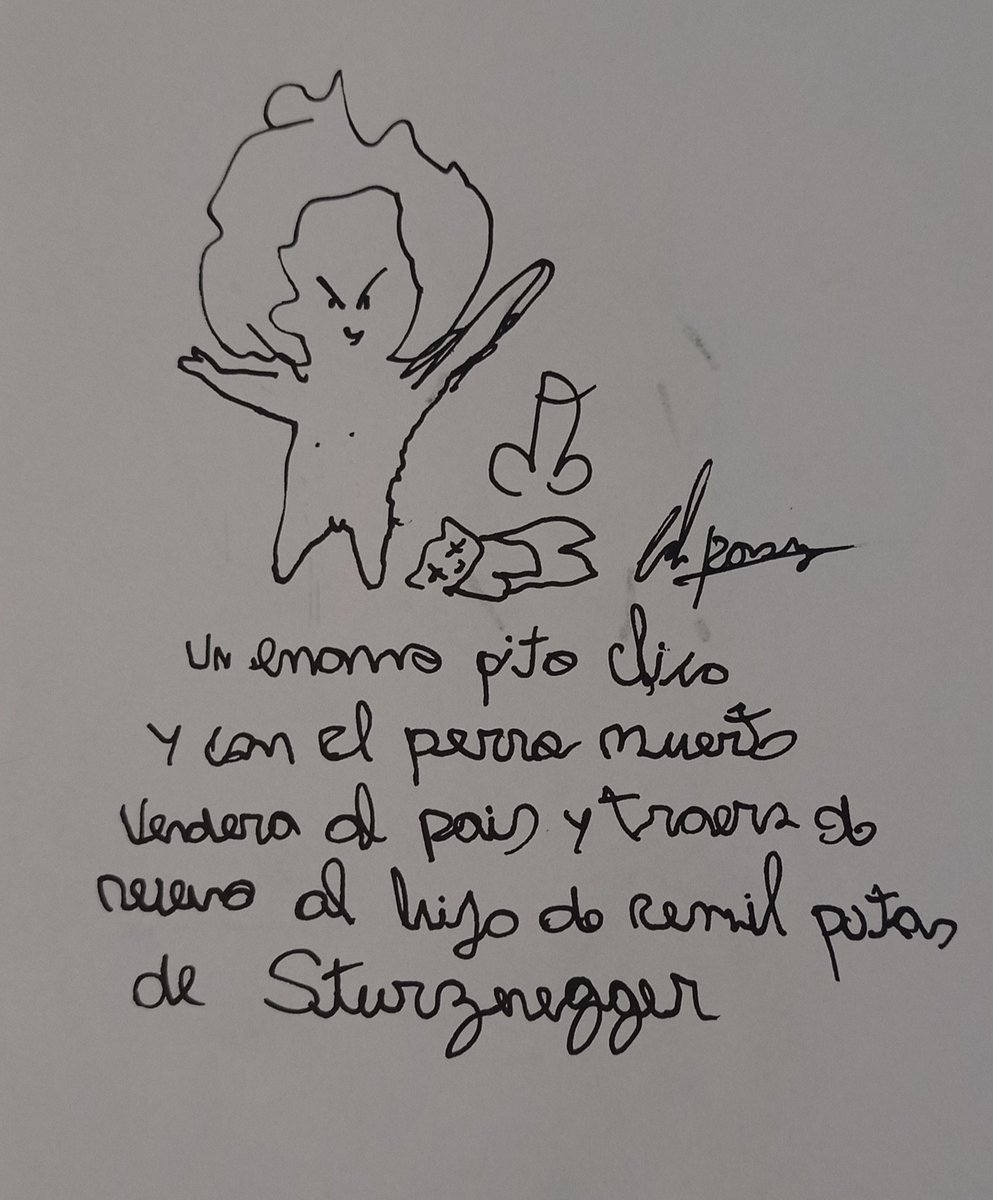 Un enorme pito chico
y con el perro muerto
vendera al pais y traera de
nuevo al hijo de remil putas
de Sturznegger